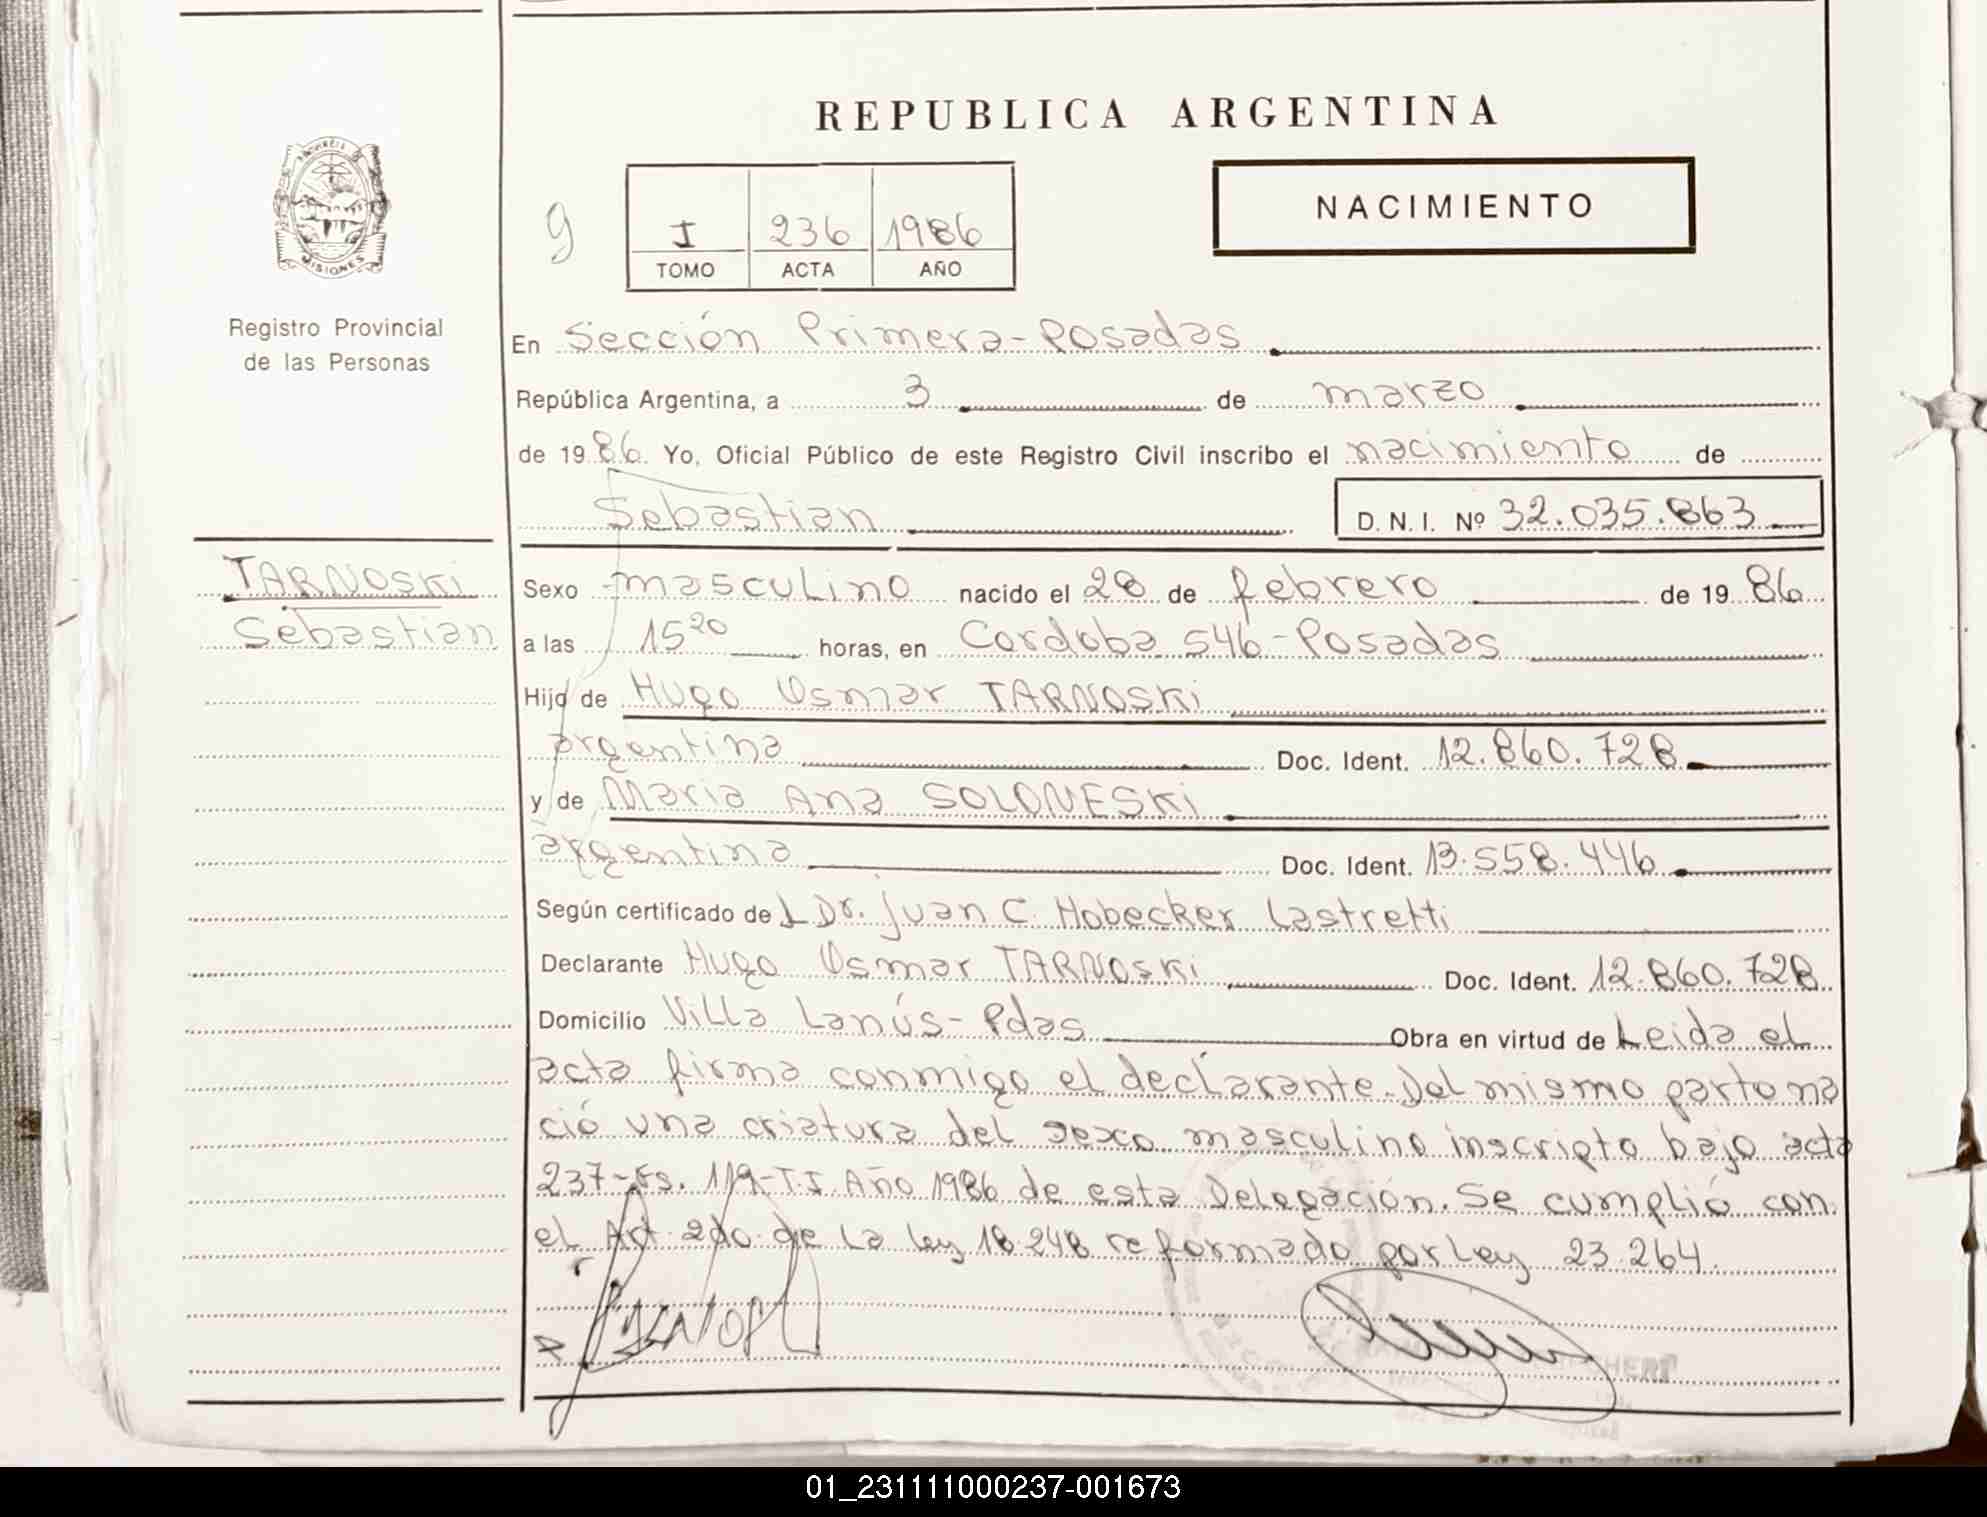 REPUBLICA ARGENTINA
PROVINCIA DE
MISIONES
Registro Provincial
de las Personas
9
I 236 1986
TOMO ACTA AÑO
NACIMIENTO
En Sección Primera-Posadas
República Argentina, a 3 de marzo
de 1986. Yo, Oficial Público de este Registro Civil inscribo el nacimiento de
Sebastian D. N. I. Nº 32.035.863
TARNOSKi
Sebastian
Sexo masculino nacido el 28 de febrero de 1986
a las 15 20 horas, en Cordoba 546-Posadas
Hijo de Hugo Osmar TARNOSKi
argentina Doc. Ident. 12.860.728
y de Maria Ana SOLONESKi
argentina Doc. Ident. 13.558.446
Según certificado del Dr. Juan C. Hobecker Lastretti
Declarante Hugo Osmar TARNOSKi Doc. Ident. 12.860.728
Domicilio Villa Lanús-Pdas Obra en virtud de Leida el
acta firma conmigo el declarante. Del mismo parto na
ció una criatura del sexo masculino inscripto bajo acta
237-Fs. 119-T.I Año 1986 de esta Delegación. Se cumplió con
el Art. 2do. de la ley 18.248 reformado por Ley 23.264.
01_231111000237-001673